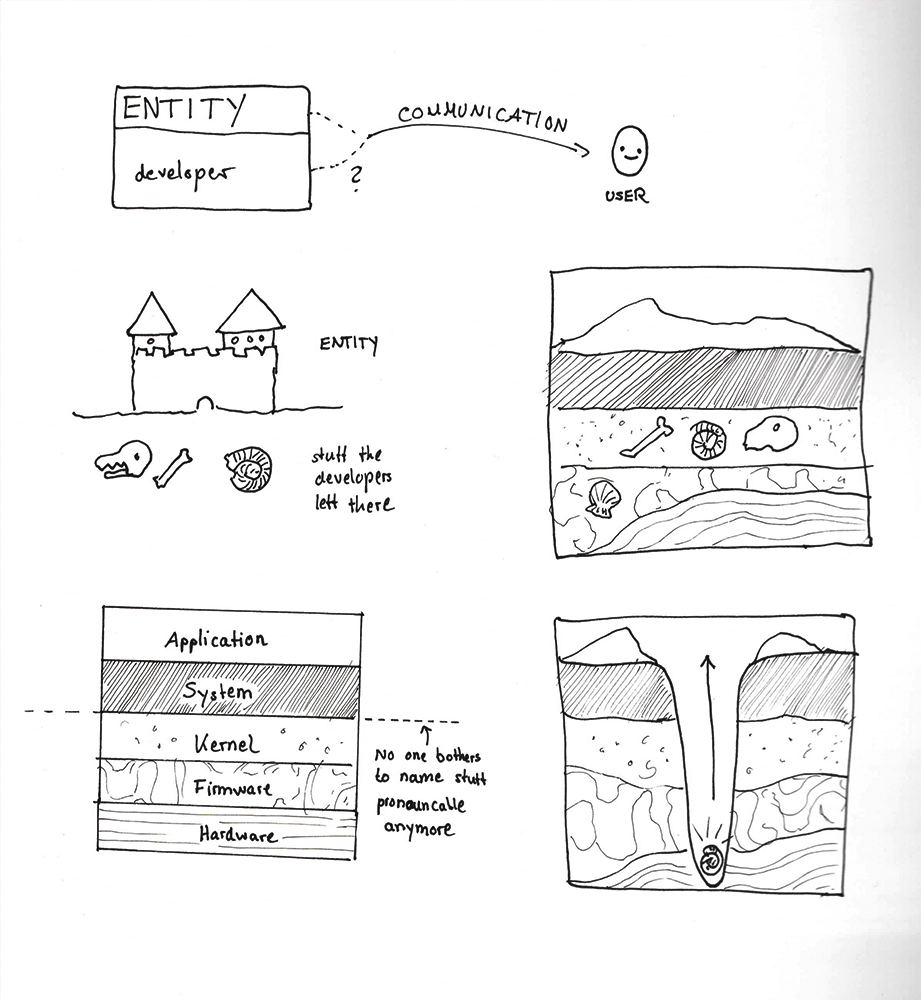 ENTITY
developer
?
COMMUNICATION
USER
ENTITY
stuff the
developers
left there
Application
System
Kernel
Firmware
Hardware
No one bothers
to name stuff
pronouncable
anymore